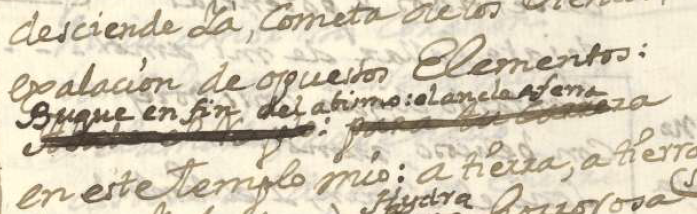 desciende la, Cometa de los
exalación de opuestos Elementos:
Buque en fin del abismo: el ancla aferra
para la carrera
en este Templo mio: a tierra, a tierra
Hydra horrorosa